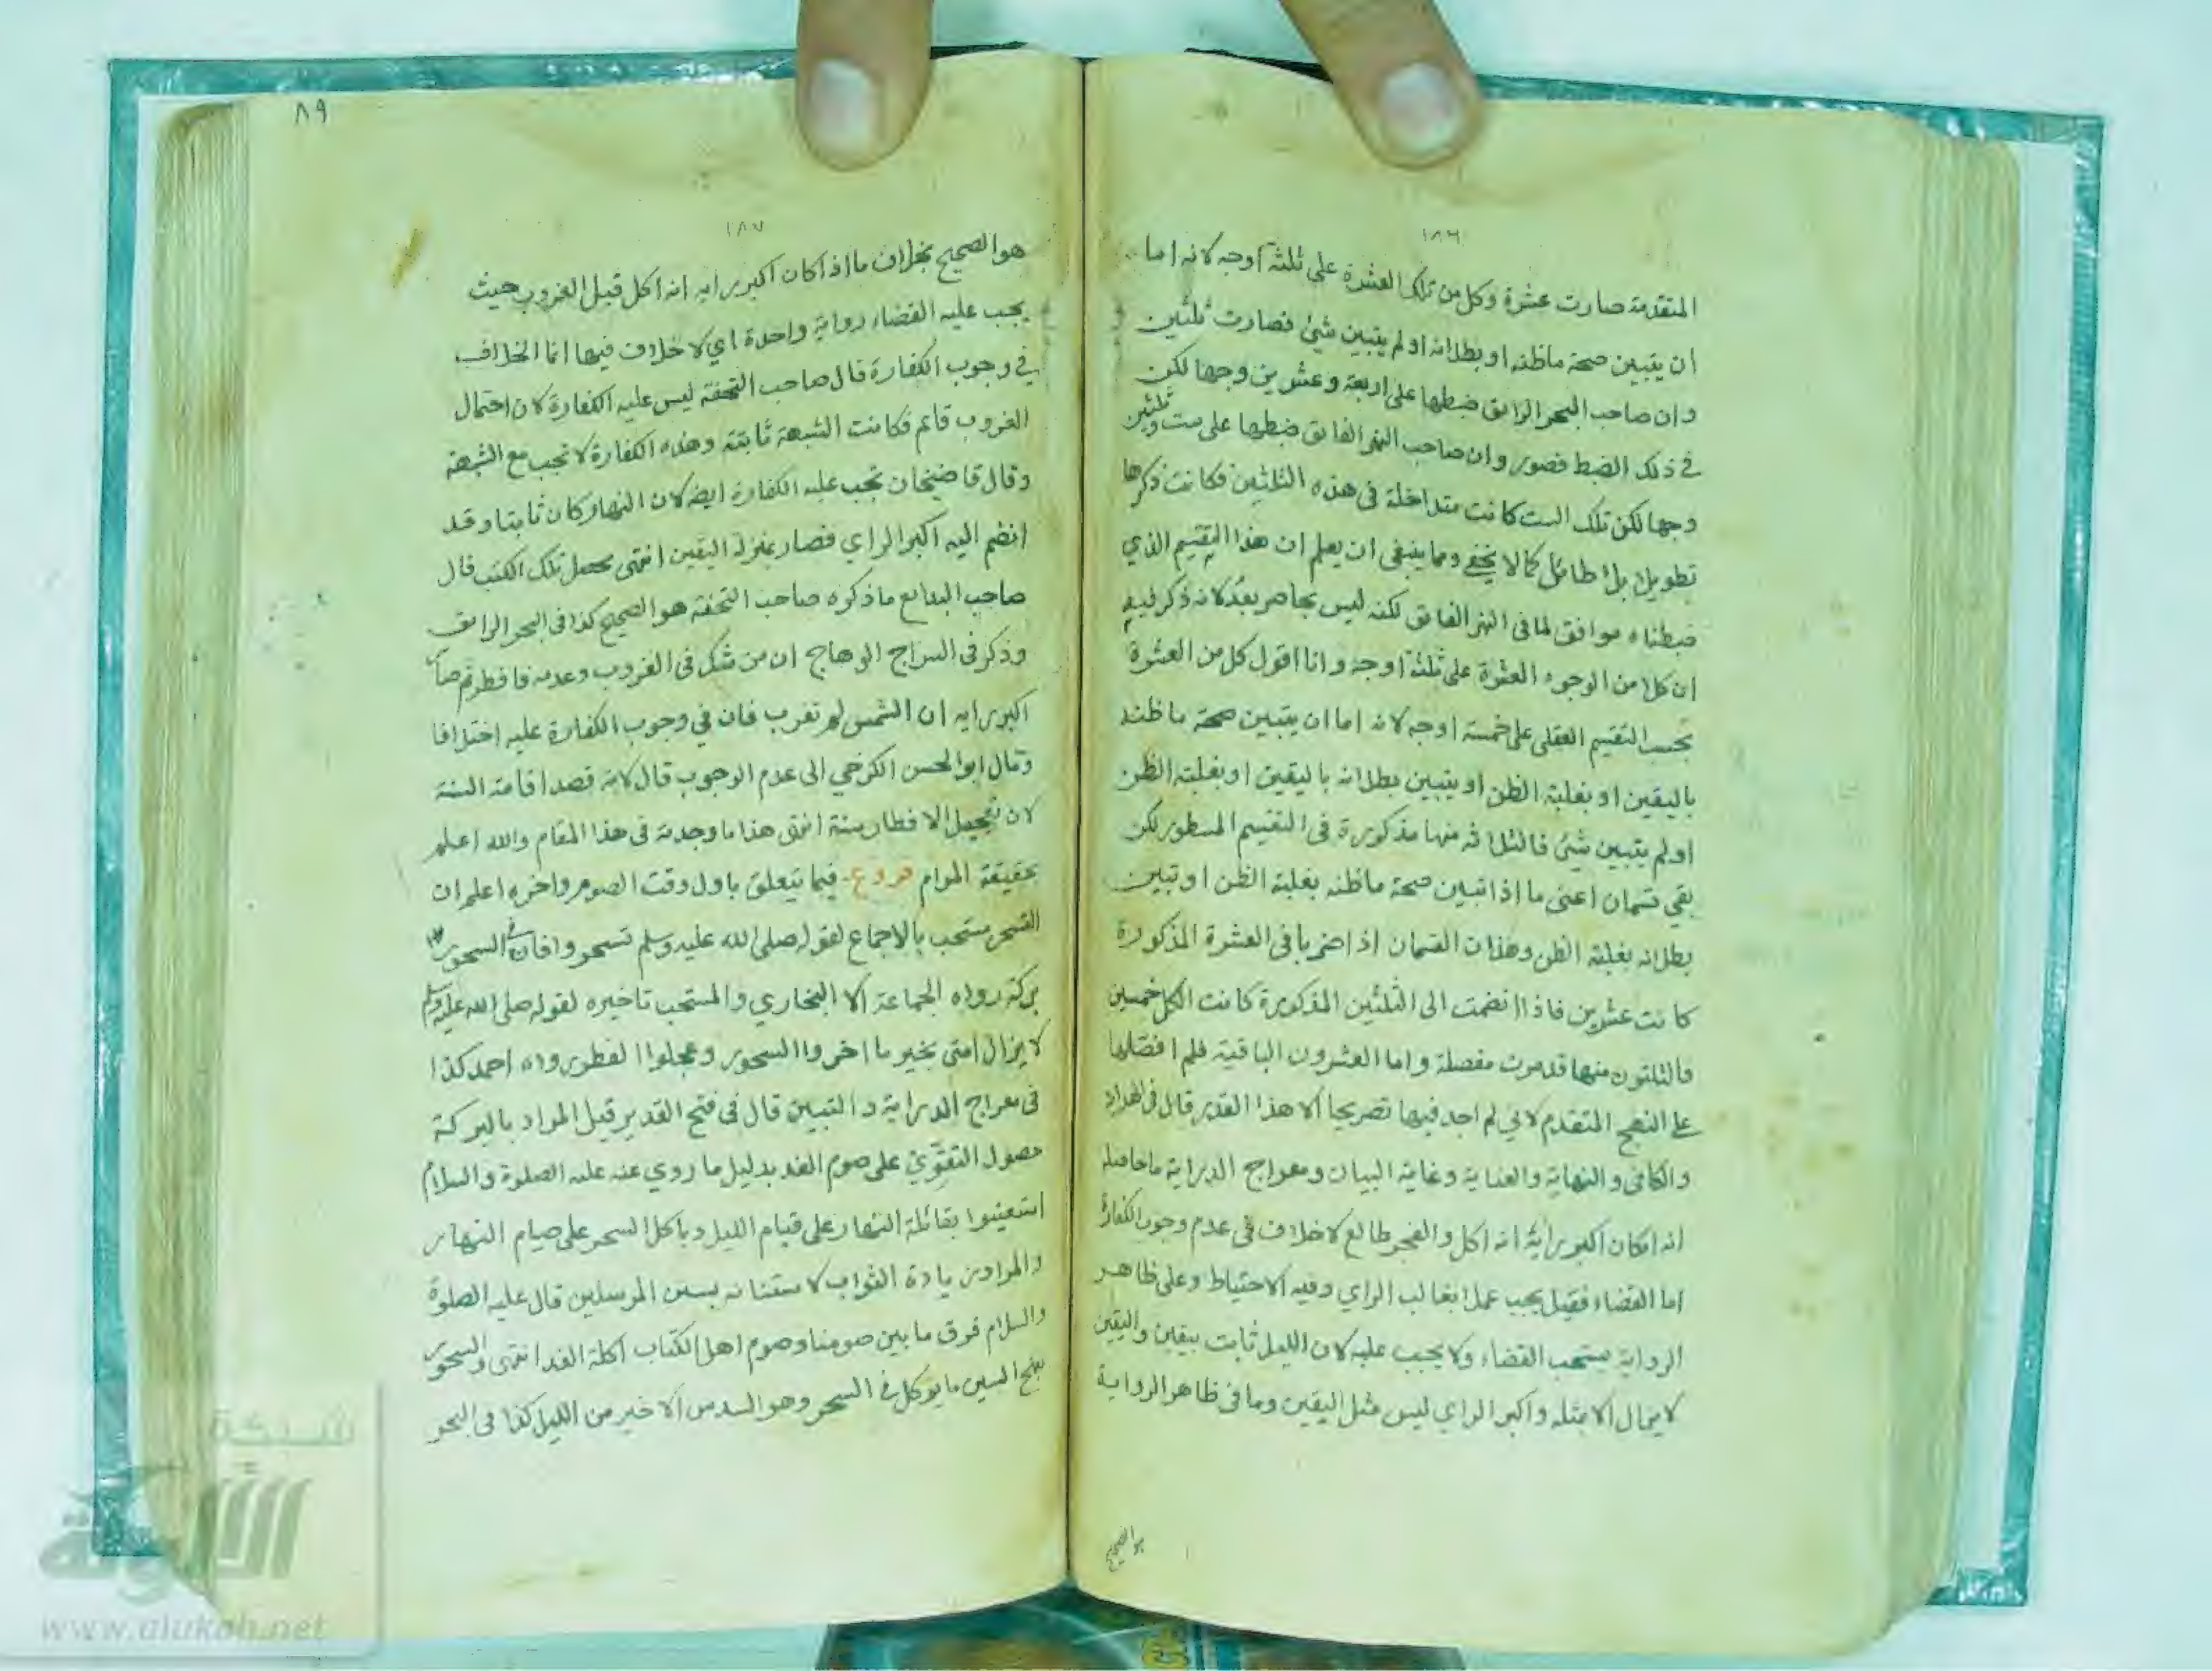 ١٨٦
المتقدمة صارت عشرة وكل من تلك العشرة على ثلثة اوجه لانه اما
ان يتبين صحة ماظنه او بطلانه او لم يتبين شئ فصارت ثلثين
وان صاحب البحر الرائق ضبطها على اربعة وعشرين وجها لكن
في ذلك الضبط قصور وان صاحب النهر الفائق ضبطها على ست وثلثين
وجها لكن تلك الست كانت متداخلة فى هذه الثلثين فكانت ذكرها
تطويلا بلا طائل كما لا يخفى ومما ينبغى ان يعلم ان هذا التقسيم الذي
ضبطناه موافق لما فى النهر الفائق لكنه ليس بحاصر بعد لانه ذكر فيه
ان كلا من الوجوه العشرة على ثلثة اوجه وانا اقول كل من العشرة
بحسب التقسيم العقلى على خمسة اوجه لانه اما ان يتبين صحة ماظنه
باليقين او بغلبة الظن او يتبين بطلانه باليقين او بغلبة الظن
او لم يتبين شئ فالثلاثة منها مذكورة فى التقسيم المسطور لكن
بقي قسمان اعنى ما اذا تبين صحة ماظنه بغلبة الظن او تبين
بطلانه بغلبة الظن وهذان القسمان اذا ضربا فى العشرة المذكورة
كانت عشرين فاذا انضمت الى الثلثين المذكورة كانت الكل خمسين
فالثلثون منها قد مرت مفصلة واما العشرون الباقية فلم افصلها
على النهج المتقدم لاني لم اجد فيها تصريحا الا هذا القدر قال فى الهداية
والكافى والنهاية والعناية وغاية البيان ومعراج الدراية ماحاصله
انه اذا كان اكبر رأية انه اكل والفجر طالع لاخلاف فى عدم وجوب الكفارة
اما القضاء فقيل يجب عملا بغالب الراي وفيه الاحتياط وعلى ظاهر
الرواية يستحب القضاء ولا يجب عليه لان الليل ثابت بيقين واليقين
لا يزال الا بمثله واكبر الراي ليس مثل اليقين وما فى ظاهر الرواية
هو الصحيح
٨٩
١٨٧
هو الصحيح بخلاف ما اذا كان اكبر رايه انه اكل قبل الغروب حيث
يجب عليه القضاء رواية واحدة اي لاخلاف فيها انما الخلاف
في وجوب الكفارة قال صاحب التحفة ليس عليه الكفارة لان احتمال
الغروب قائم فكانت الشبهة ثابتة وهذه الكفارة لا تجب مع الشبهة
وقال قاضيخان تجب عليه الكفارة ايضه لان النهار كان ثابتا وقد
انضم اليه اكبر الراي فصار بمنزلة اليقين انتهى محصل تلك الكتب قال
صاحب البدائع ماذكره صاحب التحفة هو الصحيح كذا فى البحر الرائق
وذكر فى السراج الوهاج ان من شك فى الغروب وعدمه فافطر ثم صار
اكبر رايه ان الشمس لم تغرب فان في وجوب الكفارة عليه اختلافا
ومال ابو الحسن الكرخي الى عدم الوجوب قال لانه قصد اقامة السنة
لان تعجيل الافطار سنة انتهى هذا ما وجدته فى هذا المقام والله اعلم
بحقيقة المرام فروع فيما يتعلق باول وقت الصوم واخره اعلم ان
التسحر مستحب بالاجماع لقوله صلى الله عليه وسلم تسحروا فان فى السحور
بركة رواه الجماعة الا البخاري والمستحب تاخيره لقوله صلى الله عليه وسلم
لا يزال امتى بخير ما اخروا السحور وعجلوا الفطور رواه احمد كذا
فى معراج الدراية والتبيين قال فى فتح القدير قيل المراد بالبركة
حصول التقوّي على صوم الغد بدليل ما روي عنه عليه الصلوة والسلام
استعينوا بقائلة النهار على قيام الليل وباكل السحر على صيام النهار
والمراد زيادة الثواب لاستنانه بسنن المرسلين قال عليه الصلوة
والسلام فرق ما بين صومنا وصوم اهل الكتاب اكلة الغدا انتهى والسحور
بفتح السين ما يوكل فى السحر وهو السدس الاخير من الليل كذا فى البحر
شبكة
الألوكة
www.alukah.net